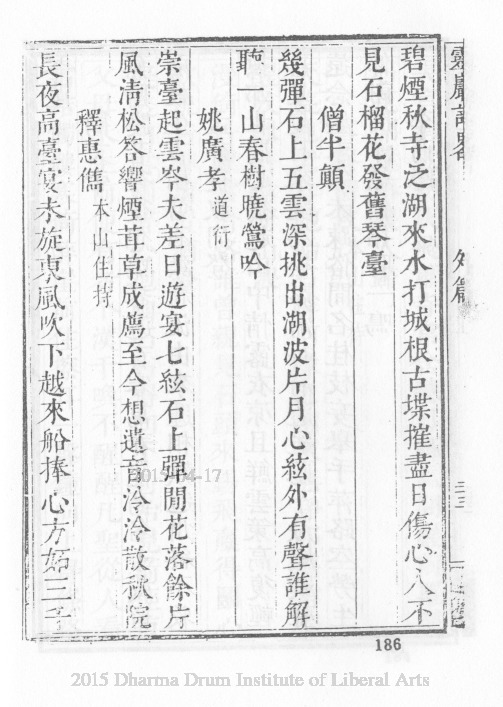 靈巖記畧 外篇 三三
碧煙秋寺泛湖來水打城根古堞摧盡日傷心人不
見石榴花發舊琴臺
僧半顛
幾彈石上五雲深挑出湖波片月心絃外有聲誰解
聽一山春樹曉鶯吟
姚廣孝 道衍
崇臺起雲岑夫差日遊宴七絃石上彈閒花落餘片
風清松答響煙茸草成薦至今想遺音泠泠散秋院
釋惠儁 本山住持
長夜高臺宴未旋東風吹下越來船捧心方妬三千
186
2015-04-17
2015 Dharma Drum Institute of Liberal Arts